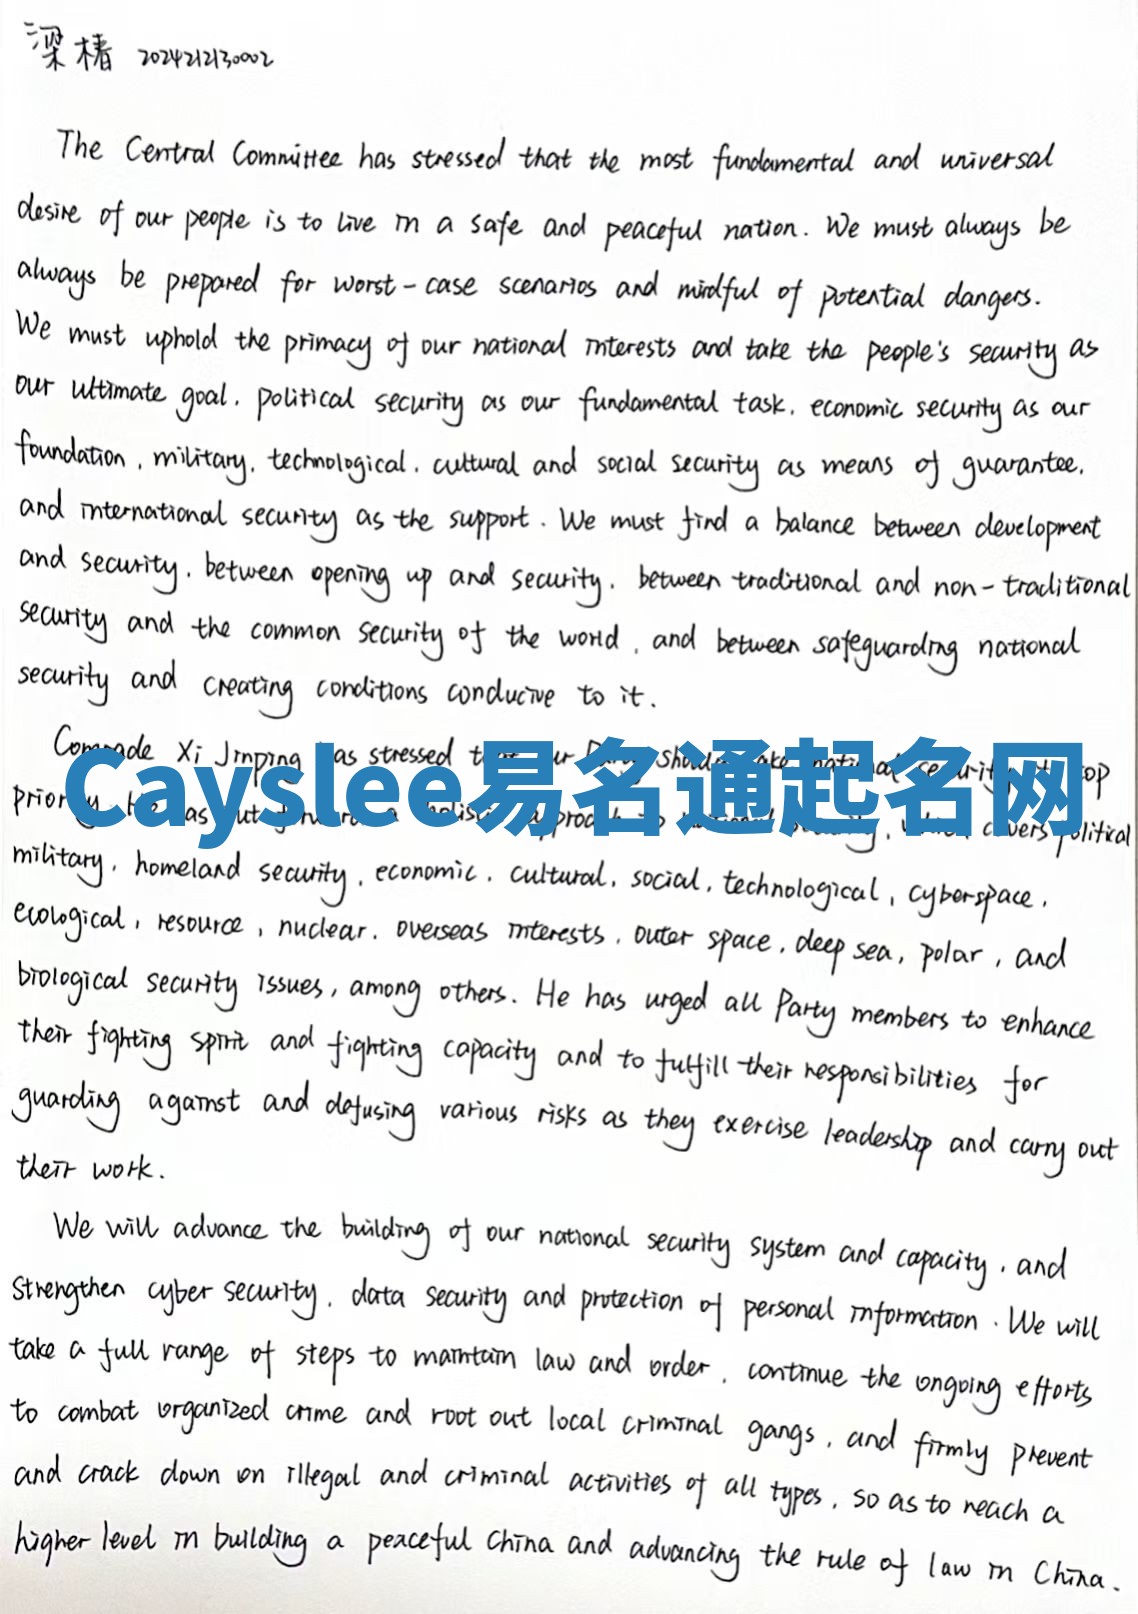 梁椿 2024212130002
The Central Committee has stressed that the most fundamental and universal
desire of our people is to live in a safe and peaceful nation. We must always be
always be prepared for worst-case scenarios and mindful of potential dangers.
We must uphold the primacy of our national interests and take the people's security as
our ultimate goal, political security as our fundamental task, economic security as our
foundation, military, technological, cultural and social security as means of guarantee,
and international security as the support. We must find a balance between development
and security, between opening up and security, between traditional and non-traditional
security and the common security of the world, and between safeguarding national
security and creating conditions conducive to it.
Comrade Xi Jinping has stressed
Cayslee易名通起名网
covers political
military, homeland security, economic, cultural, social, technological, cyberspace,
ecological, resource, nuclear, overseas interests, outer space, deep sea, polar, and
biological security issues, among others. He has urged all Party members to enhance
their fighting spirit and fighting capacity and to fulfill their responsibilities for
guarding against and defusing various risks as they exercise leadership and carry out
their work.
We will advance the building of our national security system and capacity, and
strengthen cyber security, data security and protection of personal information. We will
take a full range of steps to maintain law and order, continue the ongoing efforts
to combat organized crime and root out local criminal gangs, and firmly prevent
and crack down on illegal and criminal activities of all types, so as to reach a
higher level in building a peaceful China and advancing the rule of law in China.